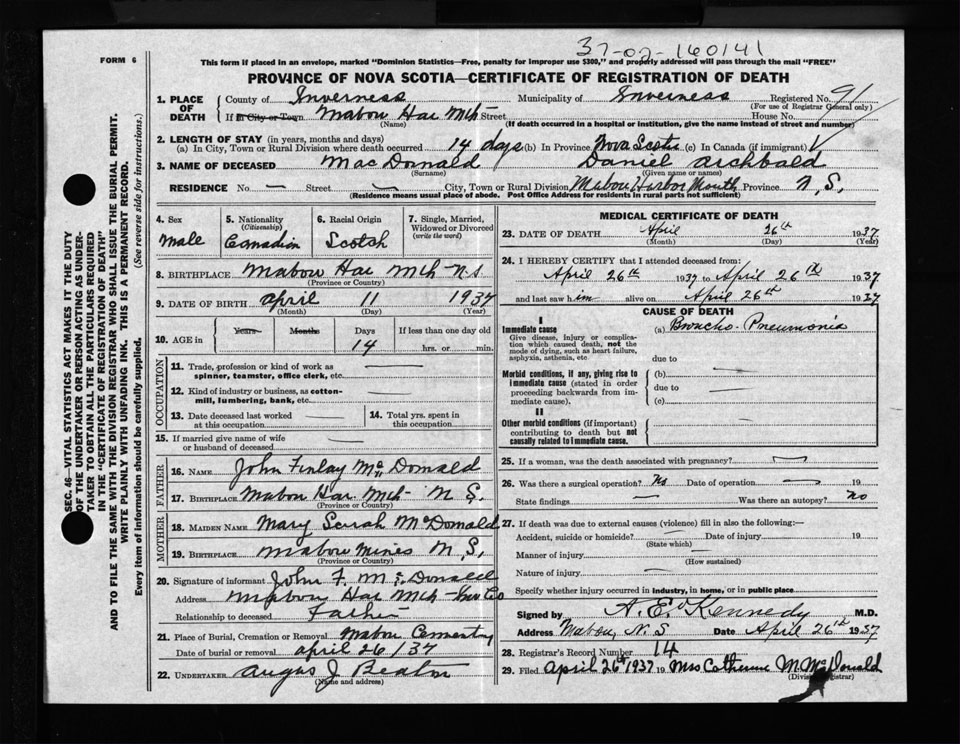 37-02-160141
FORM 6
This form if placed in an envelope, marked "Dominion Statistics—Free, penalty for improper use $300," and properly addressed will pass through the mail "FREE"
PROVINCE OF NOVA SCOTIA—CERTIFICATE OF REGISTRATION OF DEATH
SEC. 46—VITAL STATISTICS ACT MAKES IT THE DUTY
OF THE UNDERTAKER OR PERSON ACTING AS UNDER-
TAKER TO OBTAIN ALL THE PARTICULARS REQUIRED
IN THE "CERTIFICATE OF REGISTRATION OF DEATH"
AND TO FILE THE SAME WITH THE DIVISION REGISTRAR WHO SHALL ISSUE THE BURIAL PERMIT.
WRITE PLAINLY WITH UNFADING INK. THIS IS A PERMANENT RECORD.
Every item of information should be carefully supplied. (See reverse side for instructions.)
1. PLACE OF DEATH
County of Inverness Municipality of Inverness Registered No. 91
(For use of Registrar General only)
If in City or Town Mabou Har Mth Street House No.
(Name) (If death occurred in a hospital or institution, give the name instead of street and number)
2. LENGTH OF STAY (in years, months and days)
(a) In City, Town or Rural Division where death occurred 14 days (b) In Province Nova Scotia (c) In Canada (if immigrant)
3. NAME OF DECEASED MacDonald Daniel Archbald
(Surname) (Given name or names)
RESIDENCE No. — Street — City, Town or Rural Division Mabou Harbor Mouth Province N.S.
(Residence means usual place of abode. Post Office Address for residents in rural parts not sufficient)
4. Sex
Male
5. Nationality
(Citizenship)
Canadian
6. Racial Origin
Scotch
7. Single, Married,
Widowed or Divorced
(write the word)
8. BIRTHPLACE Mabou Har Mth N.S.
(Province or Country)
9. DATE OF BIRTH April 11 1937
(Month) (Day) (Year)
10. AGE in Years Months Days If less than one day old
14 hrs. or min.
OCCUPATION
11. Trade, profession or kind of work as
spinner, teamster, office clerk, etc. —
12. Kind of industry or business, as cotton-
mill, lumbering, bank, etc. —
13. Date deceased last worked
at this occupation
14. Total yrs. spent in
this occupation
15. If married give name of wife
or husband of deceased
FATHER
16. NAME John Finlay McDonald
17. BIRTHPLACE Mabou Har Mth N S.
(Province or Country)
MOTHER
18. MAIDEN NAME Mary Sarah McDonald
19. BIRTHPLACE Mabou Mines N.S.
(Province or Country)
20. Signature of informant John F. McDonald
Address Mabou Har Mth Inv Co
Relationship to deceased Father
21. Place of Burial, Cremation or Removal Mabou Cemetery
Date of burial or removal April 26/37
22. UNDERTAKER Angus J Beaton
(Name and address)
MEDICAL CERTIFICATE OF DEATH
23. DATE OF DEATH April 26th 1937
(Month) (Day) (Year)
24. I HEREBY CERTIFY that I attended deceased from:
April 26th 1937 to April 26th 1937
and last saw him alive on April 26th 1937
CAUSE OF DEATH
I
Immediate cause
Give disease, injury or complica-
tion which caused death, not the
mode of dying, such as heart failure,
asphyxia, asthenia, etc
(a) Broncho-Pneumonia
due to
Morbid conditions, if any, giving rise to
immediate cause (stated in order
proceeding backwards from im-
mediate cause).
(b) —
due to —
(c) —
II
Other morbid conditions (if important)
contributing to death but not
causally related to immediate cause.
25. If a woman, was the death associated with pregnancy? —
26. Was there a surgical operation? No Date of operation — 19
State findings — Was there an autopsy? no
27. If death was due to external causes (violence) fill in also the following:—
Accident, suicide or homicide? Date of injury 19
(State which)
Manner of injury
(How sustained)
Nature of injury
Specify whether injury occurred in industry, in home, or in public place
Signed by A. E. Kennedy M.D.
Address Mabou, N.S Date April 26th 1937
28. Registrar's Record Number 14
29. Filed April 26th 1937 19 Mrs Catherine M. McDonald
(Division Registrar)